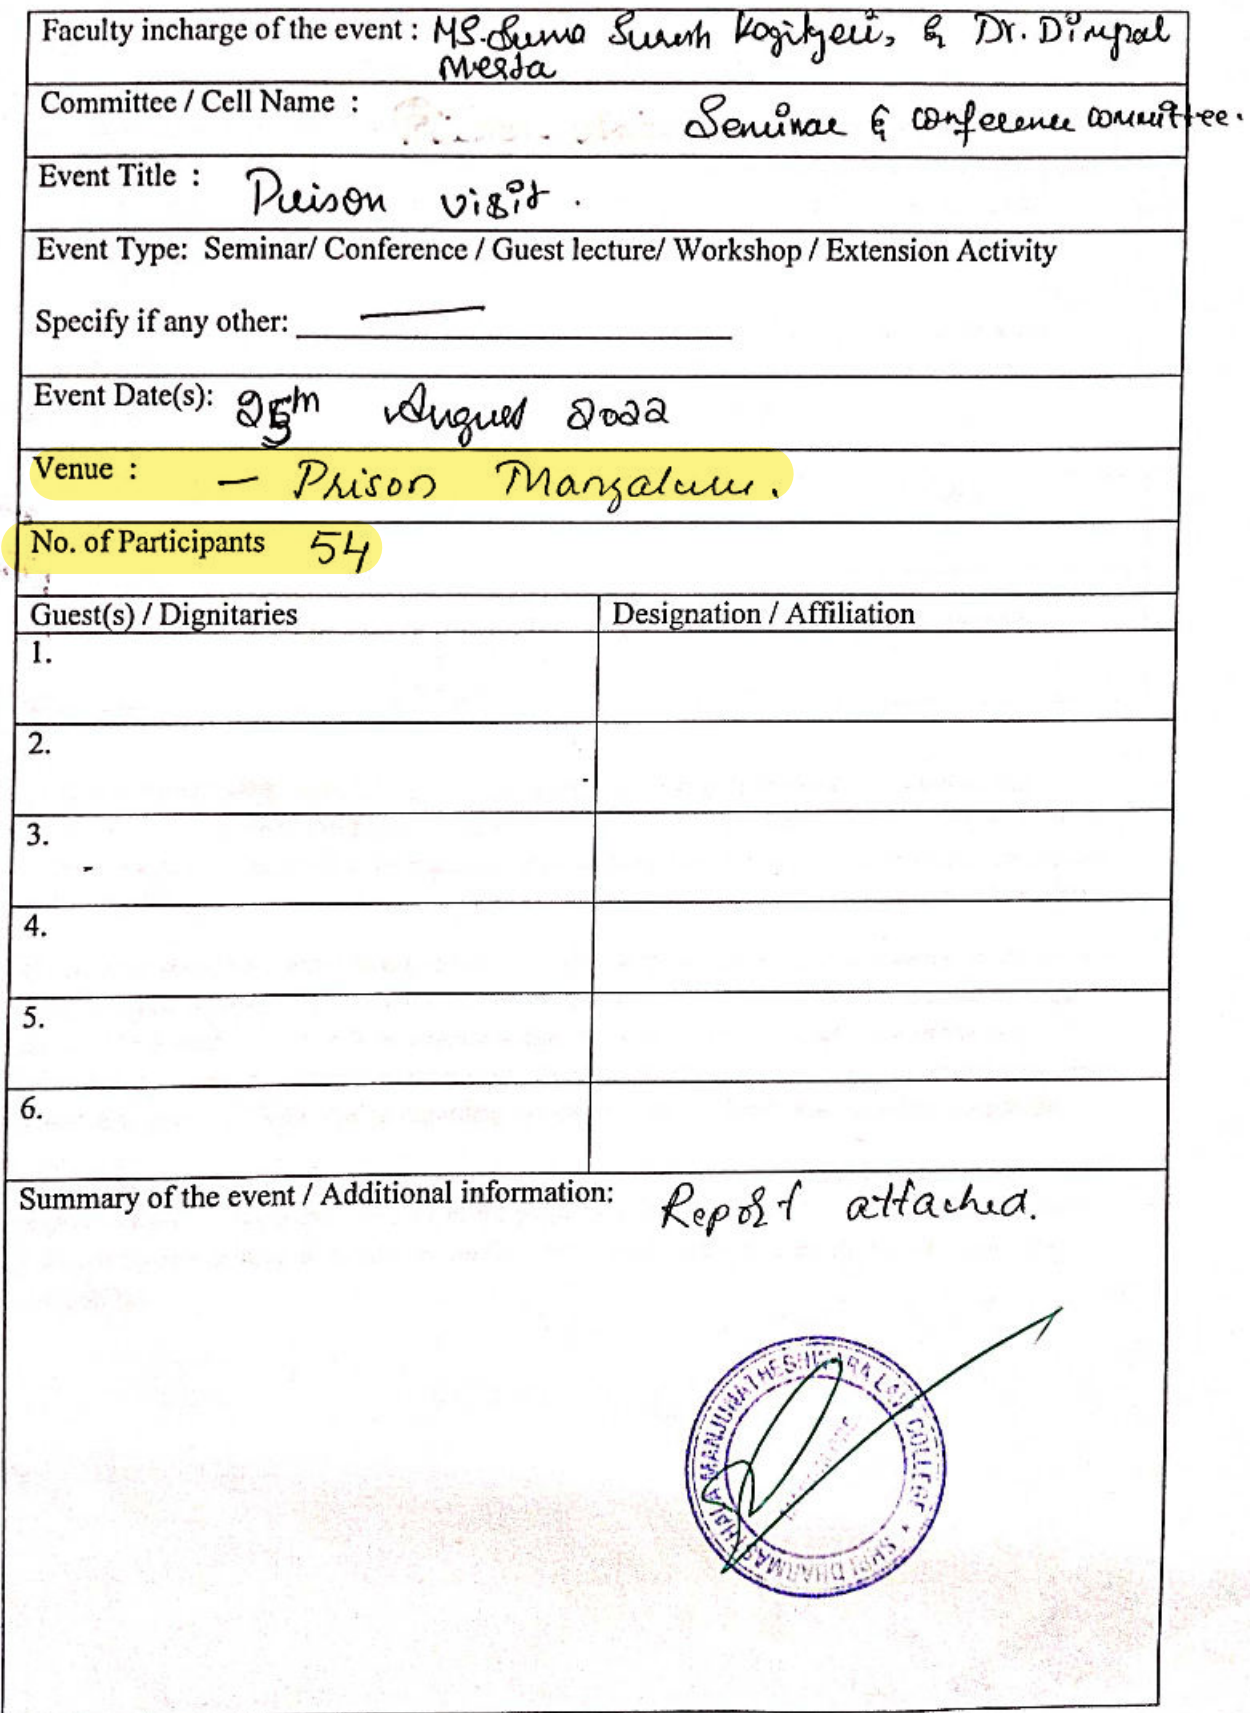 Faculty incharge of the event : MS. Suma Suresh Kogilgeri, & Dr. Dimpal
Mesta
Committee / Cell Name :
Seminar & conference committee.
Event Title : Prison visit.
Event Type: Seminar/ Conference / Guest lecture/ Workshop / Extension Activity
Specify if any other:
Event Date(s): 25th August 2022
Venue : - Prison Mangaluru.
No. of Participants 54
Guest(s) / Dignitaries Designation / Affiliation
1.
2.
3.
4.
5.
6.
Summary of the event / Additional information: Report attached.
SHRI DHARMASTHALA MANJUNATHESHWARA LAW COLLEGE